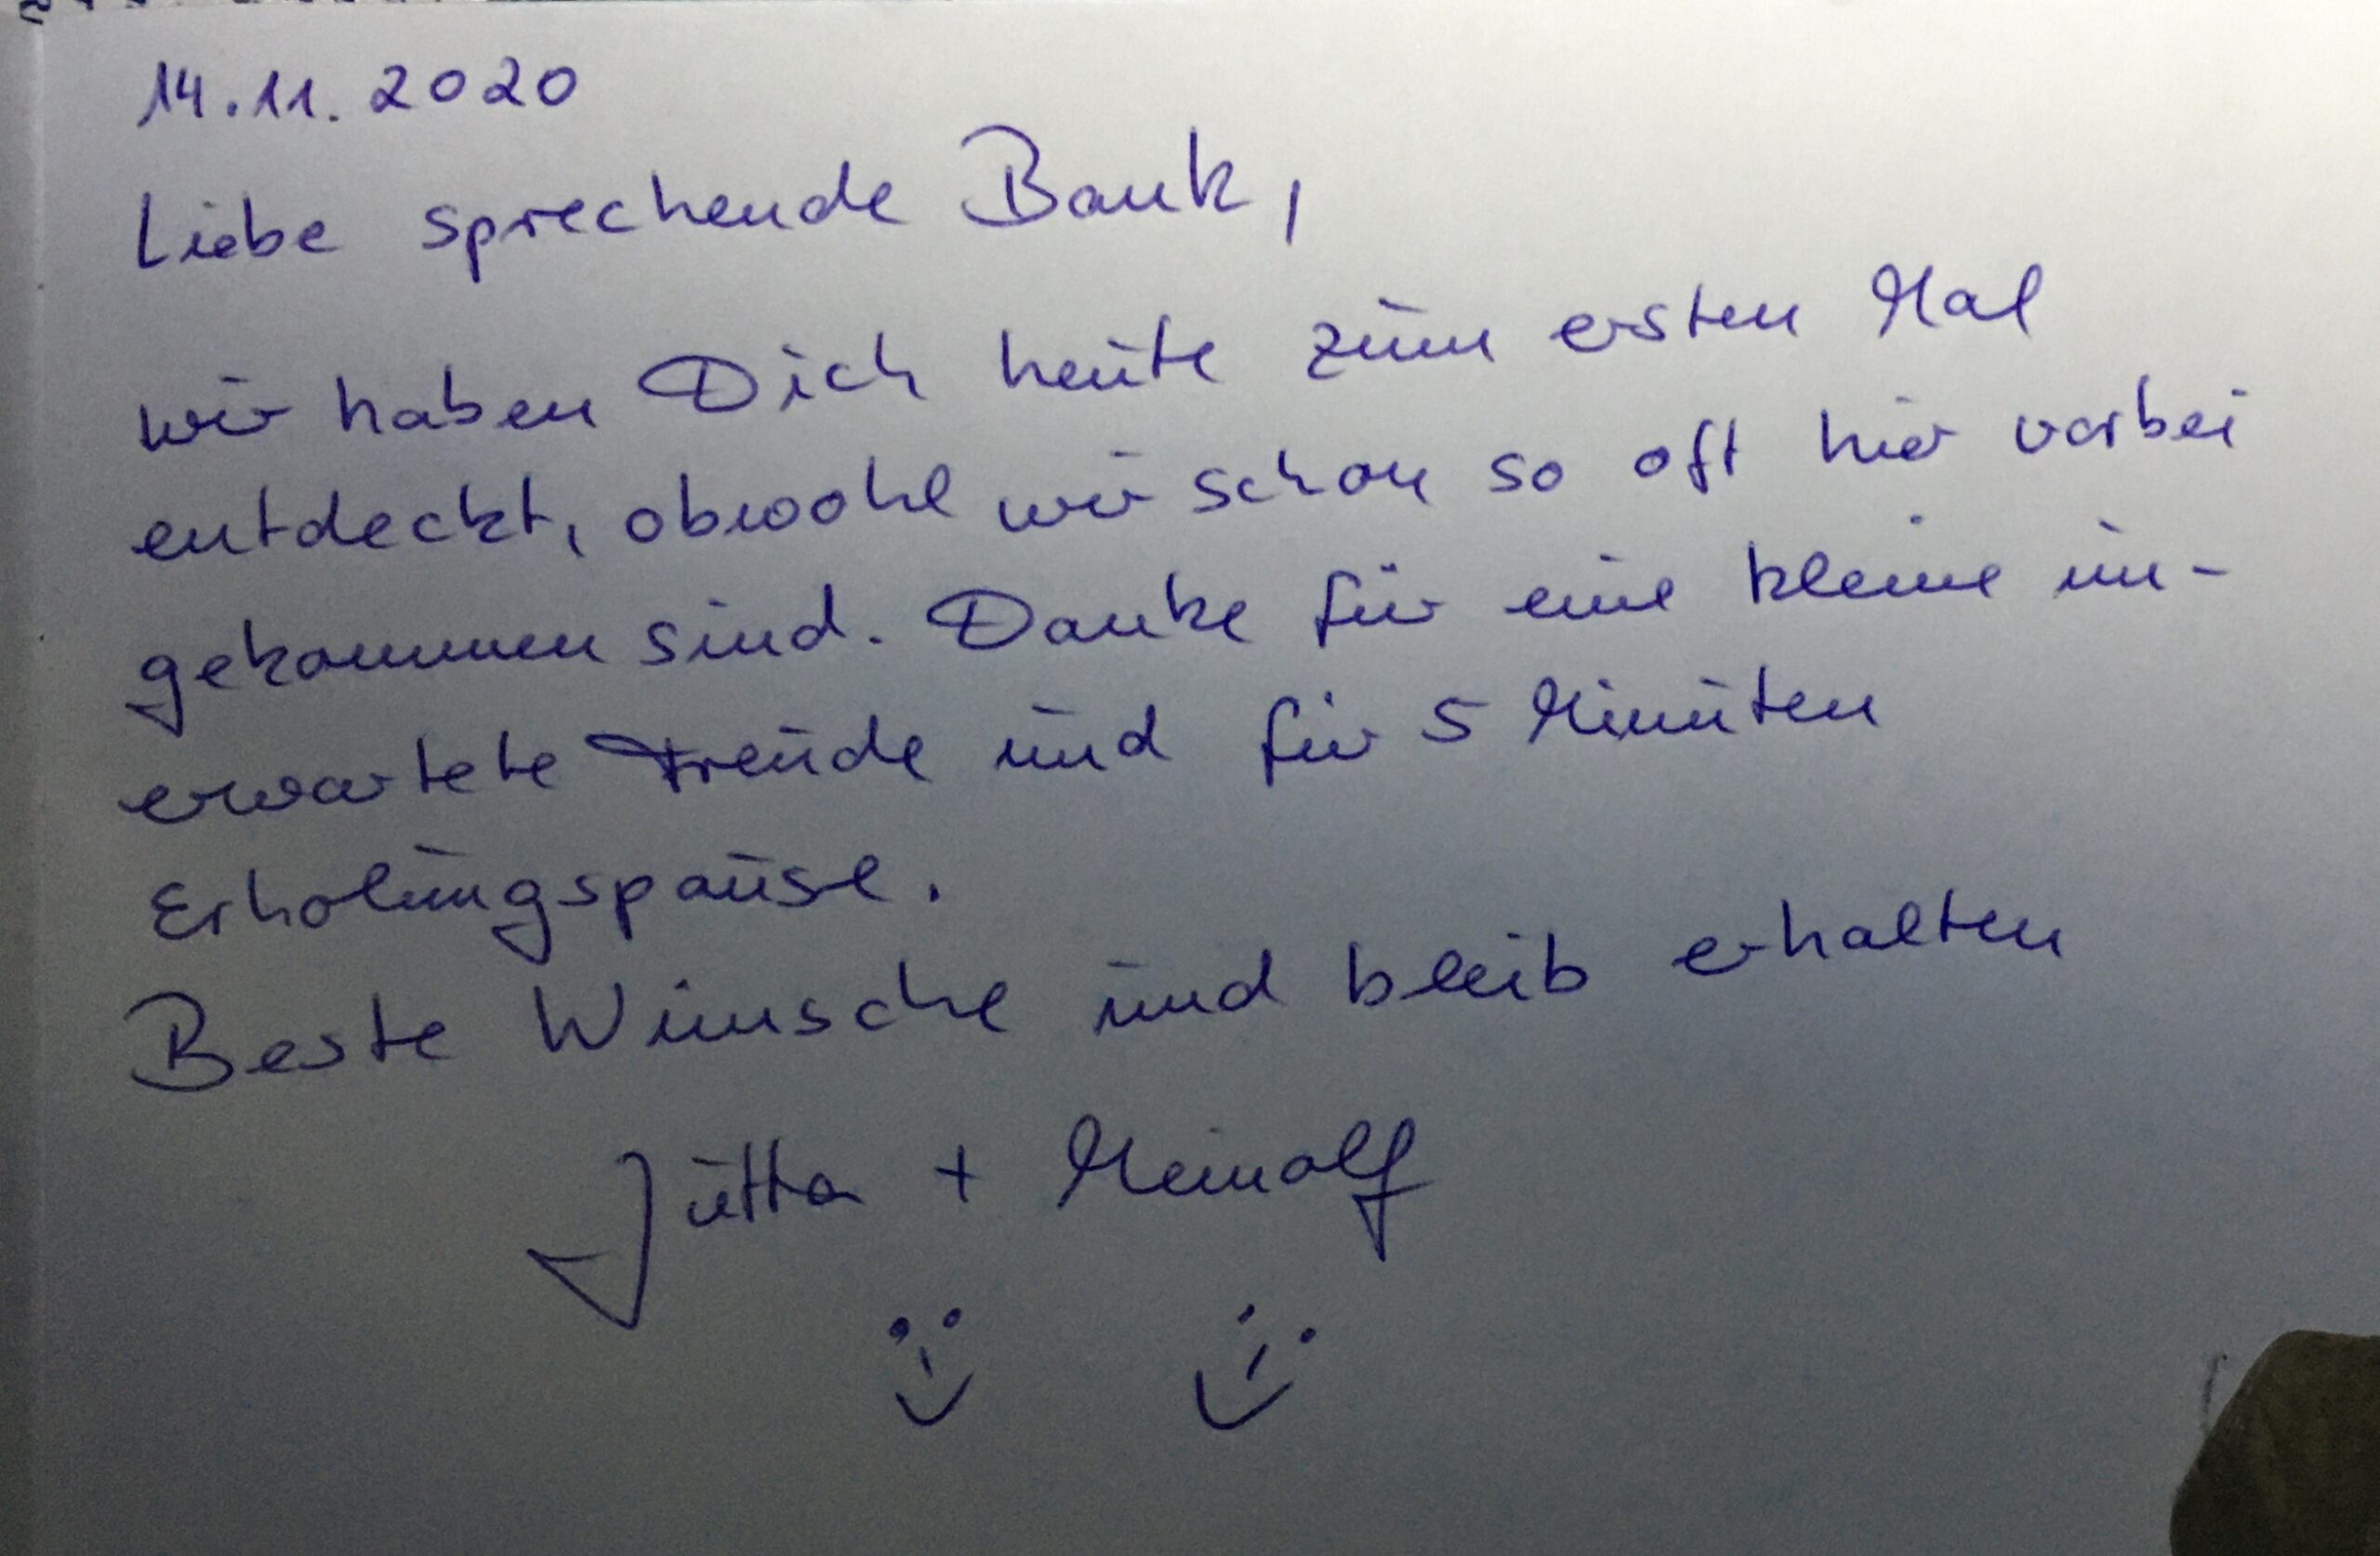 14.11.2020
Liebe sprechende Bank,
wir haben Dich heute zum ersten Mal
entdeckt, obwohl wir schon so oft hier vorbei
gekommen sind. Danke für eine kleine un-
erwartete Freude und für 5 Minuten
Erholungspause.
Beste Wünsche und bleib erhalten
Jutta + Meinolf